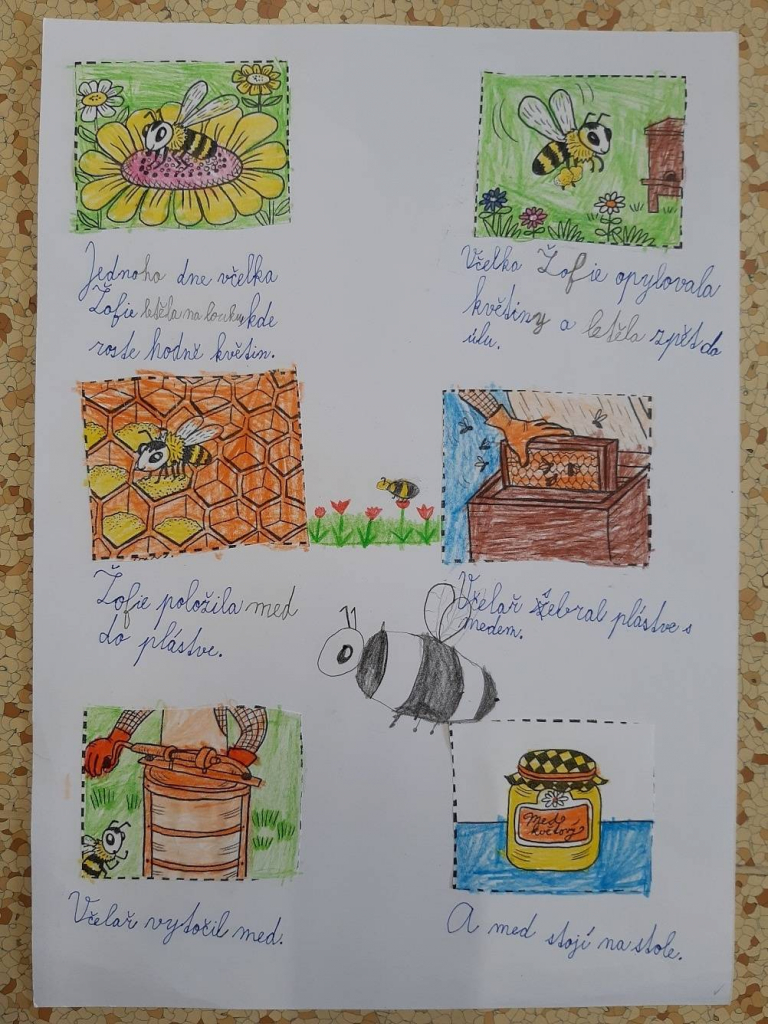 Jednoho dne včelka
Žofie letěla na louku kde
roste hodně květin.
Včelka Žofie opylovala
květiny a letěla zpět do
úlu.
Žofie položila med
do plástve.
Včelař žebral plástve s
medem.
Med
květový
Včelař vytočil med.
A med stojí na stole.